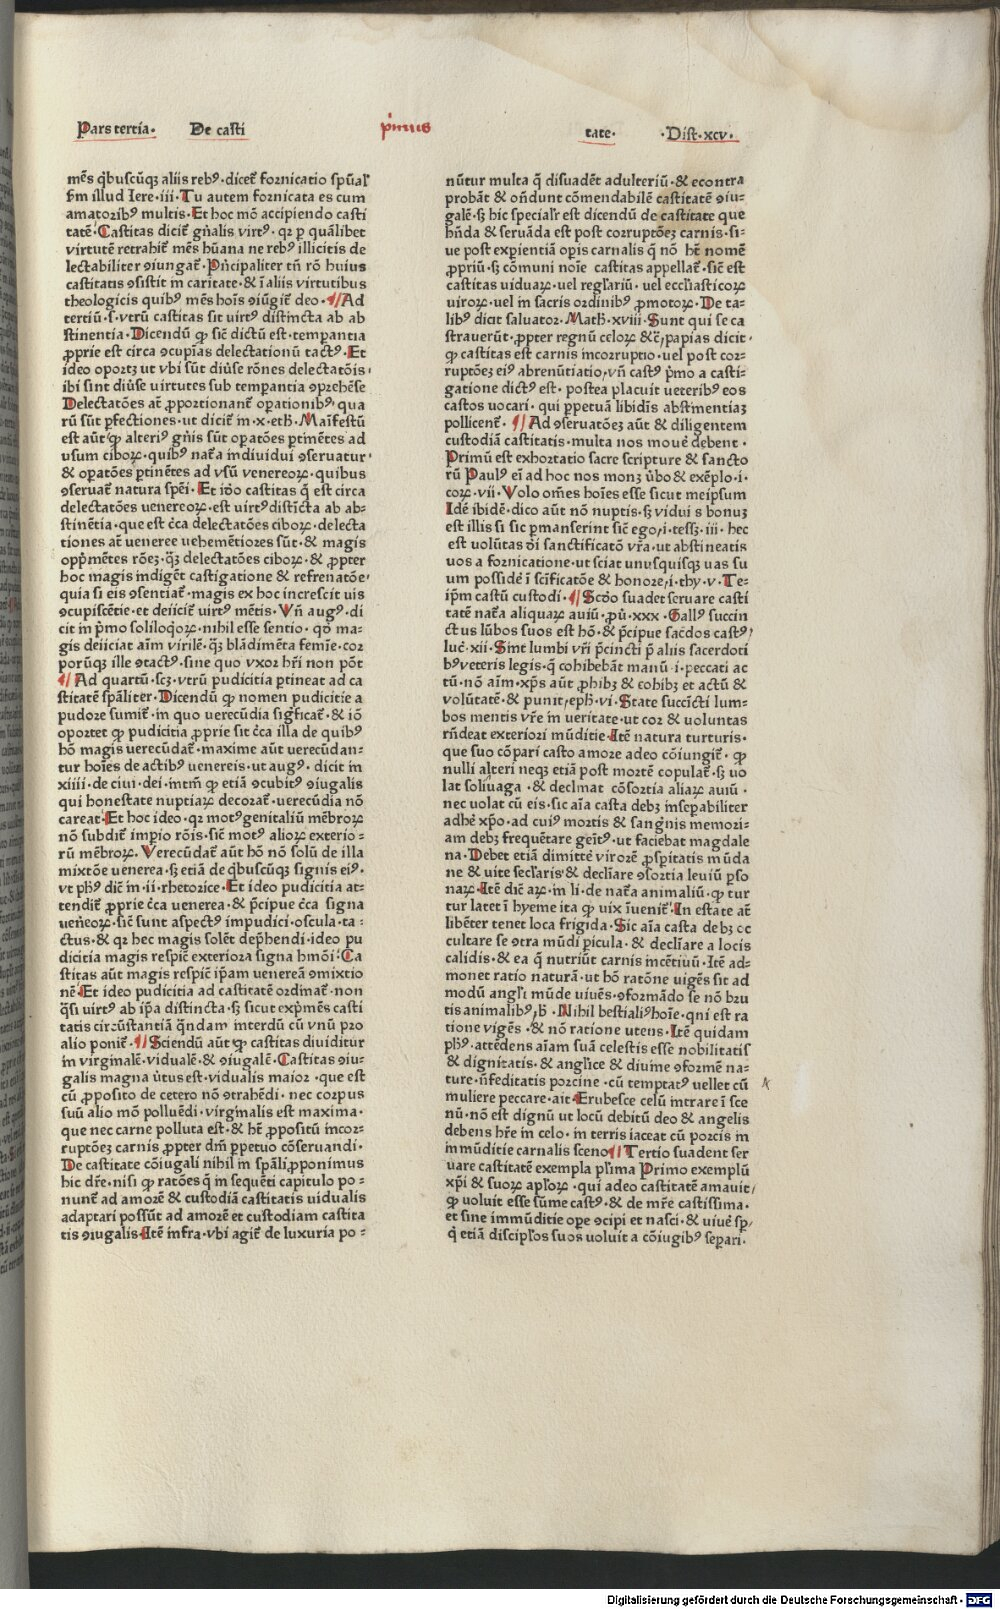 Pars tertia. De casti p̄mus tate. .Dist. xcv.
mēs q̄buscūqꝫ aliis rebꝰ. dicet̄ fornicatio spūal̄
s̄m illud Iere. iii. Tu autem fornicata es cum
amatoribꝰ multis. Et hoc mō accipiendo casti
tatē. Castitas dicit̄ gn̄alis virtꝰ. qꝛ p quālibet
virtutē retrahit̄ mēs hūana ne rebꝰ illicitis de
lectabiliter ꝯiungat̄. Pn̄cipaliter tn̄ rō huius
castitatis ꝯsistit in caritate. & ī aliis virtutibus
theologicis quibꝰ mēs hoīs ꝯiūgit̄ deo. Ad
tertiū. s. vtrū castitas sit virtꝰ distincta ab ab
stinentia. Dicendū ꝙ sic̄ dictū est. temꝑantia
ꝓprie est circa ꝯcupīas delectationū tactꝰ. Et
ideo oportꝫ ut vbi sūt diūse rōnes delectatōis.
ibi sint diūse virtutes sub temꝑantia ꝯprehēse
Delectatōes at̄ ꝓportionant̄ oꝑationibꝰ. qua
rū sūt ꝑfectiones. ut dicit̄ in. x. eth. Maīfestū
est aūt ꝙ alteriꝰ gn̄is sūt oꝑatōes ꝑtinētes ad
usum ciboꝝ. quibꝰ nat̄a indiuidui ꝯseruatur.
& oꝑatōes ꝑtinētes ad vsū venereoꝝ. quibus
ꝯseruat̄ natura spēi. Et iō̄o castitas q̄ est circa
delectatōes venereoꝝ. est virtꝰ distīcta ab ab=
stinētia. que est c̄ca delectatōes ciboꝝ. delecta
tiones at̄ veneree vehemētiores sūt. & magis
opp̄mētes rōeꝫ. q̄ꝫ delectatōes ciboꝝ. & ꝓpter
hoc magis indiget̄ castigatione & refrenatōe.
quia si eis ꝯsentiat̄. magis ex hoc increscit uis
ꝯcupiscētie. et deiicit̄ virtꝰ mētis. Vn̄ augꝰ. di
cit in p̄mo soliloq̄oꝝ. nihil esse sentio. qō ma=
gis deiiciat aīm virilē. q̄ꝫ blādimēta femīe. cor
porūqꝫ ille ꝯtactꝰ. sine quo vxor hr̄i non pōt
Ad quartū. scꝫ. vtrū pudicitia ꝑtineat ad ca
stitatē spāliter. Dicendū ꝙ nomen pudicitie a
pudore sumit̄. in quo uerecūdia sigficat̄. & iō
oportet ꝙ pudicitia ꝓprie sit c̄ca illa de quibꝰ
hō magis uerecūdat̄. maxime aūt uerecūdan=
tur hoīes de actibꝰ uenereis. ut augꝰ. dicit in
xiiii. de ciui. dei. intm̄ ꝙ etiā ꝯcubitꝰ ꝯiugalis
qui honestate nuptiaꝝ decorat̄. uerecūdia nō
careat. Et hoc ideo. qꝛ motꝰ genitaliū mēbroꝝ
nō subdit̄ imꝑio rōis. sic̄ motꝰ alioꝝ exterio=
rū mēbroꝝ. Verecūdat̄ aūt hō nō solū de illa
mixtōe uenerea. sꝫ etiā de q̄buscūqꝫ signis eiꝰ.
vt phꝰ dic̄ in. ii. rhetorice. Et ideo pudicitia at=
tendit̄ ꝓprie c̄ca uenerea. & p̄cipue c̄ca signa
uen̄eoꝝ. sic̄ sunt aspectꝰ impudici. oscula. ta=
ctus. & qꝛ hec magis solēt dep̄hendi. ideo pu
dicitia magis respic̄ exteriora signa hmōi. Ca
stitas aūt magis respic̄ ip̄am uenereā ꝯmixtio
nē. Et ideo pudicitia ad castitatē ordinat̄. non
q̄si virtꝰ ab ip̄a distincta. sꝫ sicut exp̄mēs casti
tatis circūstantiā q̄ndam interdū cū vnū pro
alio ponit̄. Sciendū aūt ꝙ castitas diuiditur
in virginalē. vidualē. & ꝯiugalē. Castitas ꝯiu=
galis magna ūtus est. vidualis maior. que est
cū ꝓposito de cetero nō ꝯtrahēdi. nec corpus
suū alio mō polluēdi. virginalis est maxima.
que nec carne polluta est. & hꝫ ꝓpositū incor=
ruptōeꝫ carnis ꝓpter dm̄ ꝑpetuo cōseruandi.
De castitate cōiugali nihil in spāli ꝓponimus
hic dr̄e. nisi ꝙ ratōes q̄ in sequēti capitulo po=
nunt̄ ad amorē & custodiā castitatis uidualis
adaptari possūt ad amorē et custodiam castita
tis ꝯiugalis. Itē infra. vbi agit̄ de luxuria po=
nūtur multa q̄ disuadēt adulteriū. & econtra
probāt & on̄dunt cōmendabilē castitatē ꝯiu=
galē. sꝫ hic special̄r est dicendū de castitate que
hn̄da & seruāda est post corruptōeꝫ carnis. si=
ue post exꝑientiā oꝑis carnalis q̄ nō hꝫ nomē
ꝓpriū. sꝫ cōmuni noīe castitas appellat̄. sic̄ est
castitas viduaꝝ. uel regl̄ariū. uel eccl̄iasticoꝝ
uiroꝝ. uel in sacris ordinibꝰ ꝓmotoꝝ. De ta=
libꝰ dicit saluator. Math. xviii. Sunt qui se ca
strauerūt. ꝓpter regnū celoꝝ &c̄. papias dicit.
ꝙ castitas est carnis incorruptio. uel post cor=
ruptōeꝫ eiꝰ abrenūtiatio. vn̄ castꝰ p̄mo a casti=
gatione dictꝰ est. postea placuit ueteribꝰ eos
castos uocari. qui ꝑpetuā libidīs abstinentiaꝫ
pollicent̄. Ad ꝯseruatōeꝫ aūt & diligentem
custodiā castitatis. multa nos mouē debent.
Primū est exhortatio sacre scripture & sancto
rū Paulꝰ eī ad hoc nos monꝫ ūbo & exēplo. i.
coꝝ. vii. Volo om̄es hoīes esse sicut meipsum
Idē ibidē. dico aūt nō nuptis. sꝫ viduis bonuꝫ
est illis si sic ꝑmanserint sic̄ ego. i. tessꝫ. iii. hec
est uolūtas dī sanctificatō vr̄a. ut abstineatis
uos a fornicatione. ut sciat unusquisqꝫ uas su
um possidē ī sc̄ificatōe & honore. i. thy. v. Te=
ip̄m castū custodi. Scd̄o suadet seruare casti
tatē nat̄a aliquaꝝ auiū. ꝓū. xxx. Gallꝰ succin
ctus lūbos suos est hō. & p̄cipue sac̄dos castꝰ
luc̄. xii. Sint lumbi vr̄i p̄cincti p̄ aliis sacerdoti
bꝰ veteris legis. q̄ cohibebāt manū. i. peccati ac
tū. nō aīm. xp̄s aūt ꝓhibꝫ & cohibꝫ et actū &
volūtatē. & punit. eph. vi. State succīcti lum=
bos mentis vr̄e in ueritate. ut cor & uoluntas
rn̄deat exteriori mūditie. Itē natura turturis.
que suo cōpari casto amore adeo cōiungit̄. ꝙ
nulli alteri neqꝫ etiā post mortē copulat̄. sꝫ uo
lat soliuaga. & declinat cōsortia aliaꝝ auiū.
nec uolat cū eis. sic aīa casta debꝫ inseꝑabiliter
adhē xp̄o. ad cuiꝰ mortis & sangnis memori=
am debꝫ frequētare geītꝰ. ut faciebat magdale
na. Debet etiā dimitt̄e virorē ꝓsꝑitatis mūda
ne & uite secl̄aris & declīare ꝯsortia leuiū ꝑso
naꝝ. Itē dic̄ aꝝ. in li. de nat̄a animaliū. ꝙ tur
tur latet ī hyeme ita ꝙ uix īuenit̄. In estate at̄
libēter tenet loca frigida. Sic aīa casta debꝫ oc
cultare se ꝯtra mūdi ꝑicula. & declīare a locis
calidis. & ea q̄ nutriūt carnis incētiuū. Itē ad=
monet ratio naturā. ut hō ratōne uigēs sit ad
modū angl̄i mūde uiuēs. ꝯformādo se nō bru
tis animalibꝰ. b̄. Nihil bestialiꝰ hoīe. qni est ra
tione vigēs. & nō ratione utens. Itē quidam
phꝰ. attēdens aīam suā celestis esse nobilitatis
& dignitatis. & angl̄ice & diuine ꝯformē na=
ture. n̄ feditatis porcine. cū temptatꝰ uellet cū
muliere peccare. ait. Erubesce celū intrare ī sce
nū. nō est dignū ut locū debitū deo & angelis
debens hr̄e in celo. in terris iaceat cū porcis in
inmūditie carnalis sceno. Tertio suadent ser
uare castitatē exempla pl̄ima Primo exemplū
xp̄i & suoꝝ apl̄oꝝ. qui adeo castitatē amauit.
ꝙ uoluit esse sūme castꝰ. & de mr̄e castissima.
et sine immūditie oꝑe ꝯcipi et nasci. & uiuē sꝑ.
q̄ etiā discipl̄os suos uoluit a cōiugibꝰ seꝑari.
Digitalisierung gefördert durch die Deutsche Forschungsgemeinschaft - DFG